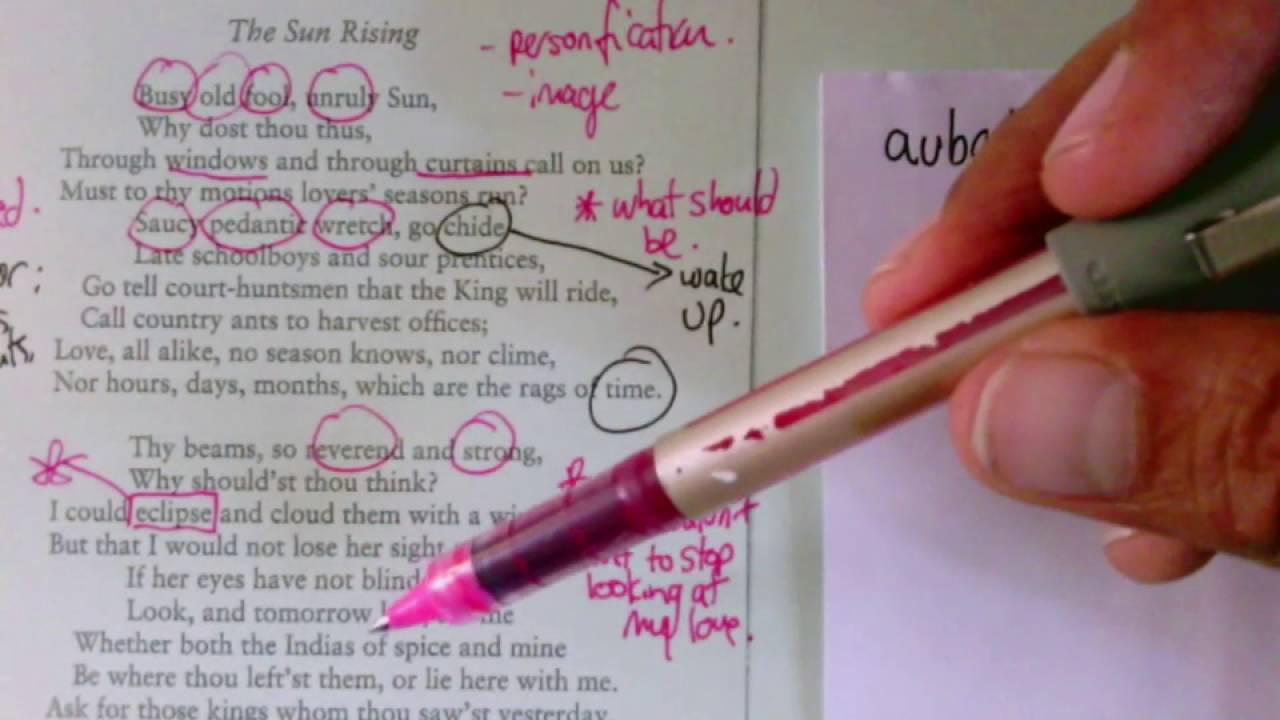 The Sun Rising
- personification.
- image
Busy old fool, unruly Sun,
Why dost thou thus,
Through windows and through curtains call on us?
Must to thy motions lovers' seasons run?
* what should
be.
Saucy pedantic wretch, go chide
Late schoolboys and sour prentices,
wake
up.
Go tell court-huntsmen that the King will ride,
Call country ants to harvest offices;
Love, all alike, no season knows, nor clime,
Nor hours, days, months, which are the rags of time.
Thy beams, so reverend and strong,
Why should'st thou think?
I could eclipse and cloud them with a
But that I would not lose her sight
If her eyes have not
Look, and tomorrow
Whether both the Indias of spice and mine
Be where thou left'st them, or lie here with me.
Ask for those kings whom thou saw'st yesterday,
to stop
looking at
my love.